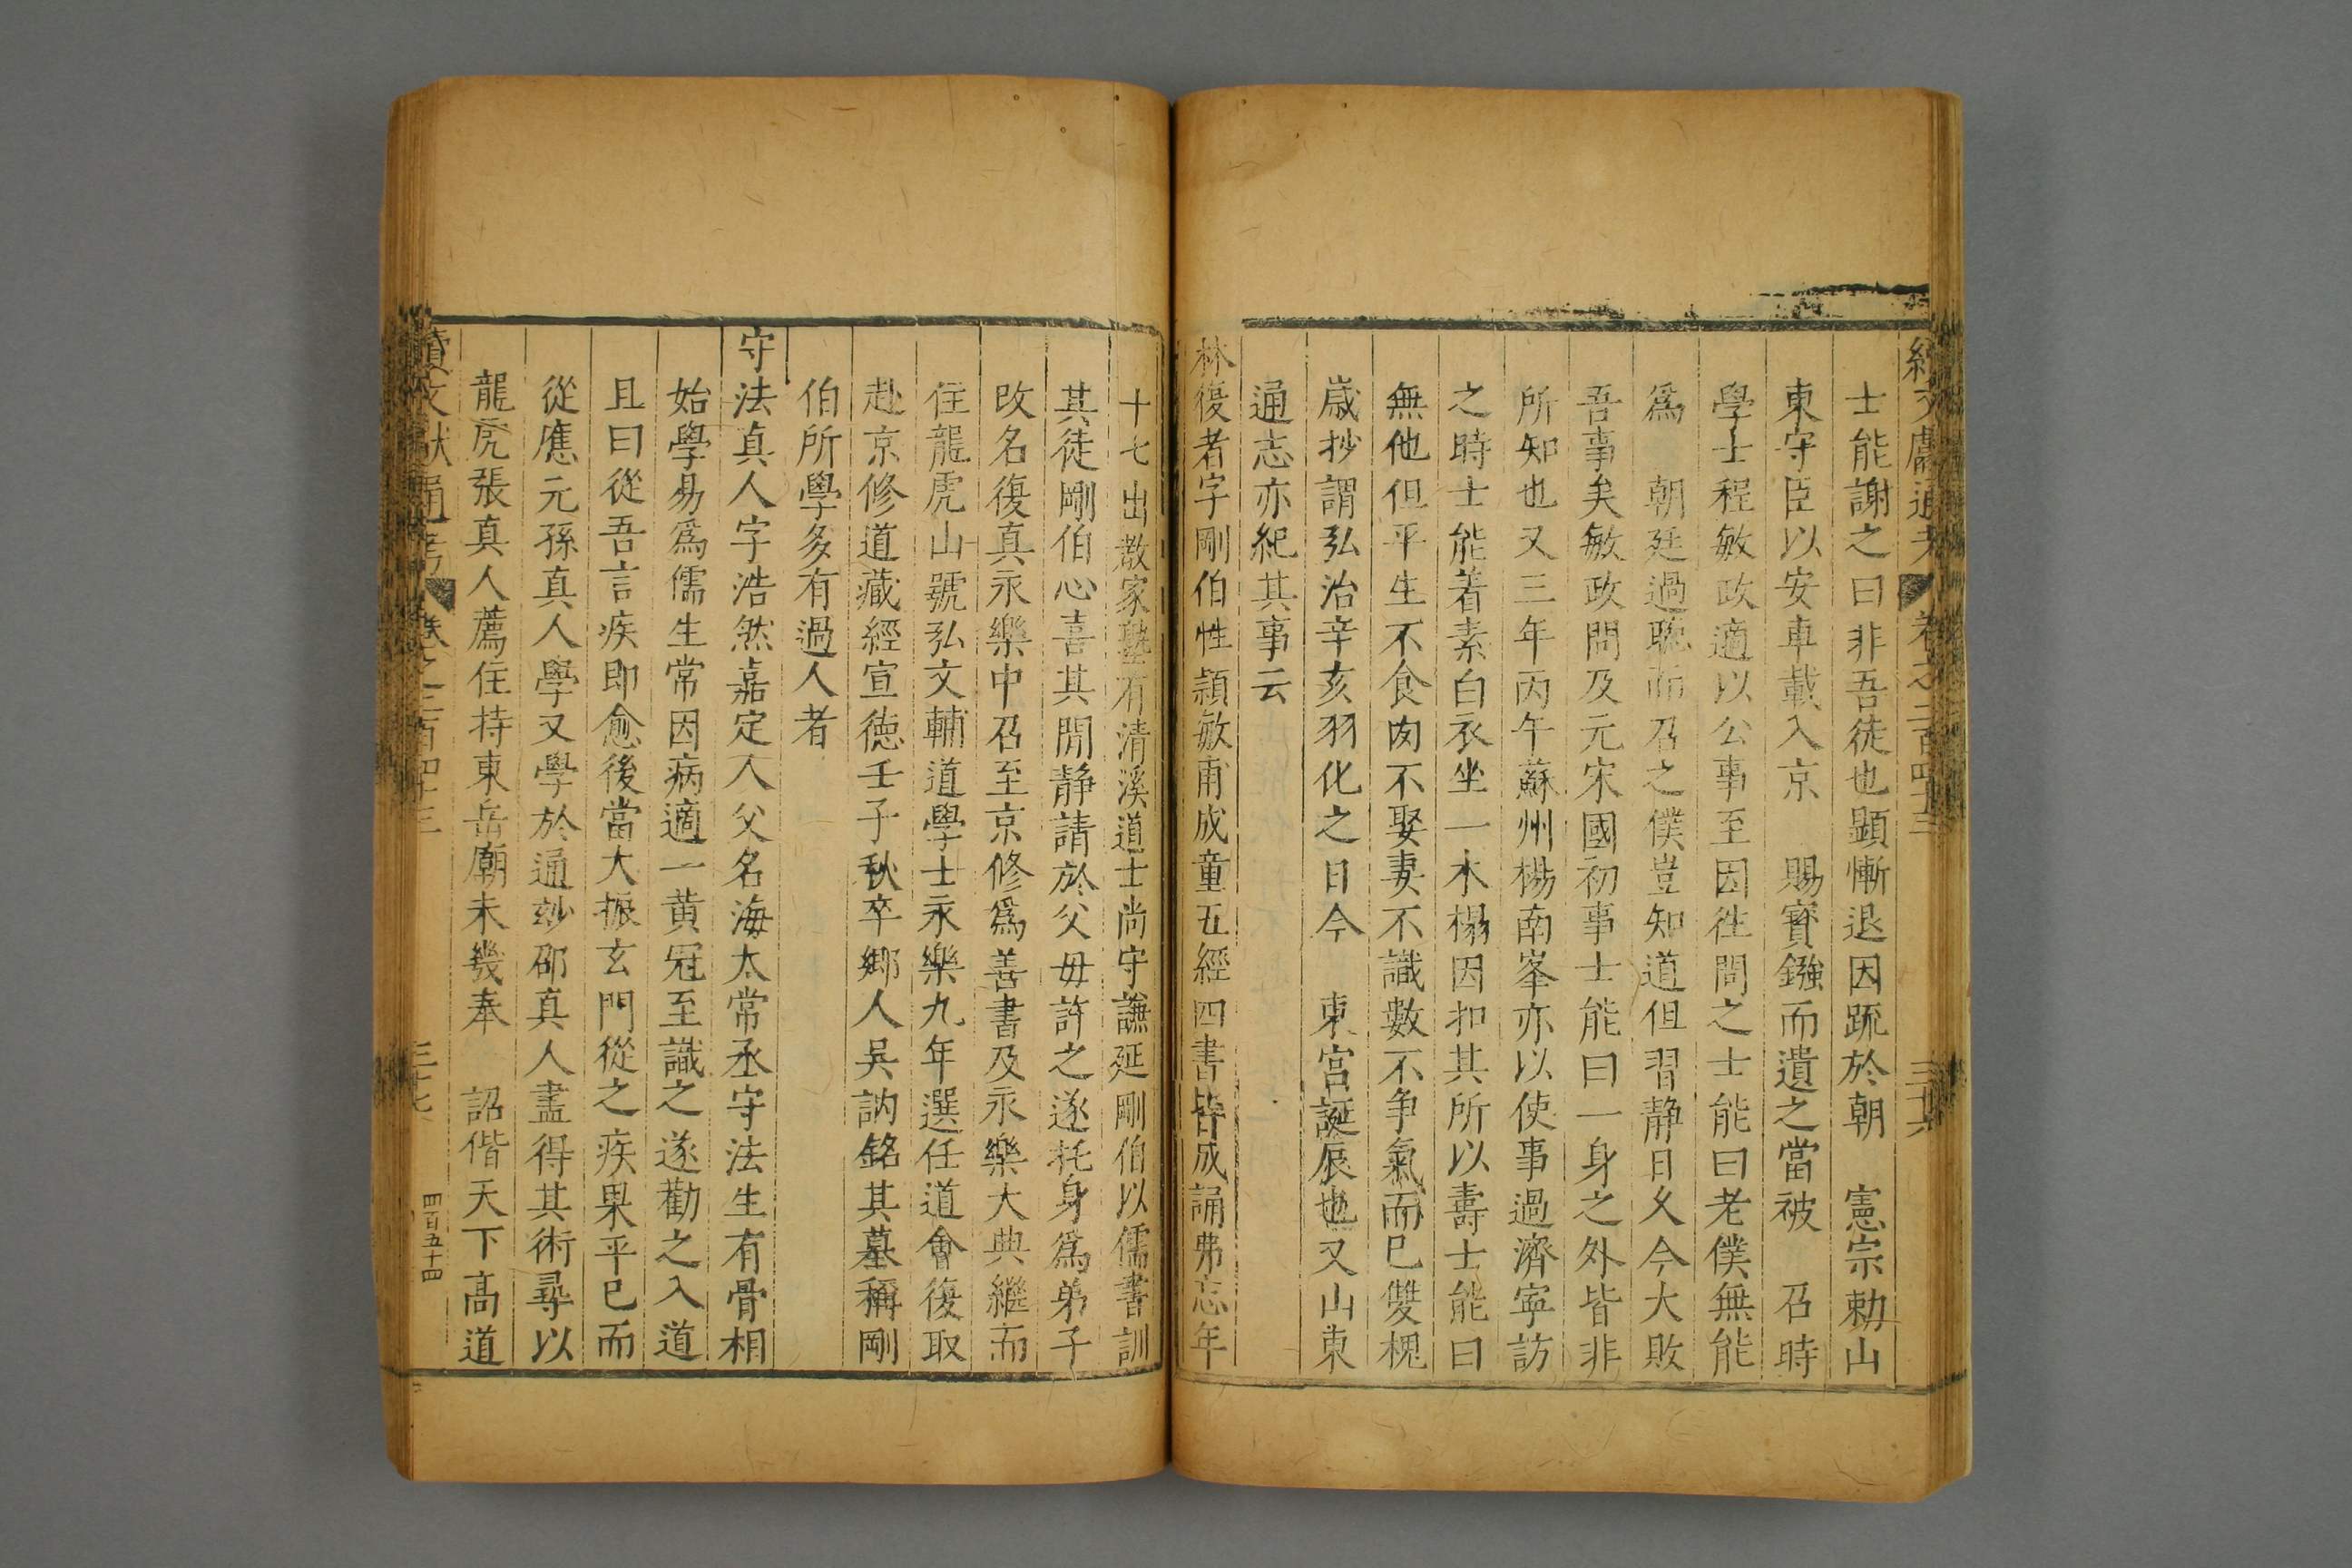 士能謝之曰非吾徒也顯慚退因䟽於朝　憲宗勅山
東守臣以安車載入京　賜寳鏹而遺之當被　召時
學士程敏政適以公事至因徃問之士能曰老僕無能
爲　朝廷過聼而召之僕豈知道但習静日久今大敗
吾事矣敏政問及元宋國初事士能曰一身之外皆非
所知也又三年丙午蘇州楊南峯亦以使事過濟寧訪
之時士能着素白衣坐一木榻因扣其所以壽士能曰
無他但平生不食肉不娶妻不識數不争氣而已雙槐
歳抄謂弘治辛亥羽化之日今　東宮誕辰也又山東
通志亦紀其事云
林復者字剛伯性頴敏甫成童五經四書皆成誦弗忘年
十七出教家塾有清溪道士尚守謙延剛伯以儒書訓
其徒剛伯心喜其閒静請於父毋許之遂托身爲弟子
改名復真永樂中召至京修爲善書及永樂大典繼而
住龍虎山號弘文輔道學士永樂九年選任道會復取
赴京修道藏經宣徳壬子秋卒郷人吳訥銘其墓稱剛
伯所學多有過人者
守法真人字浩然嘉定人父名海太常丞守法生有骨相
始學易爲儒生常因病適一黄冠至識之遂勸之入道
且曰從吾言疾即愈後當大振玄門從之疾果平已而
從應元孫真人學又學於通玅邵真人盡得其術尋以
龍虎張真人薦住持東岳廟未幾奉　詔偕天下高道
續文獻通考　卷之二百四十三　三十七
四百五十四